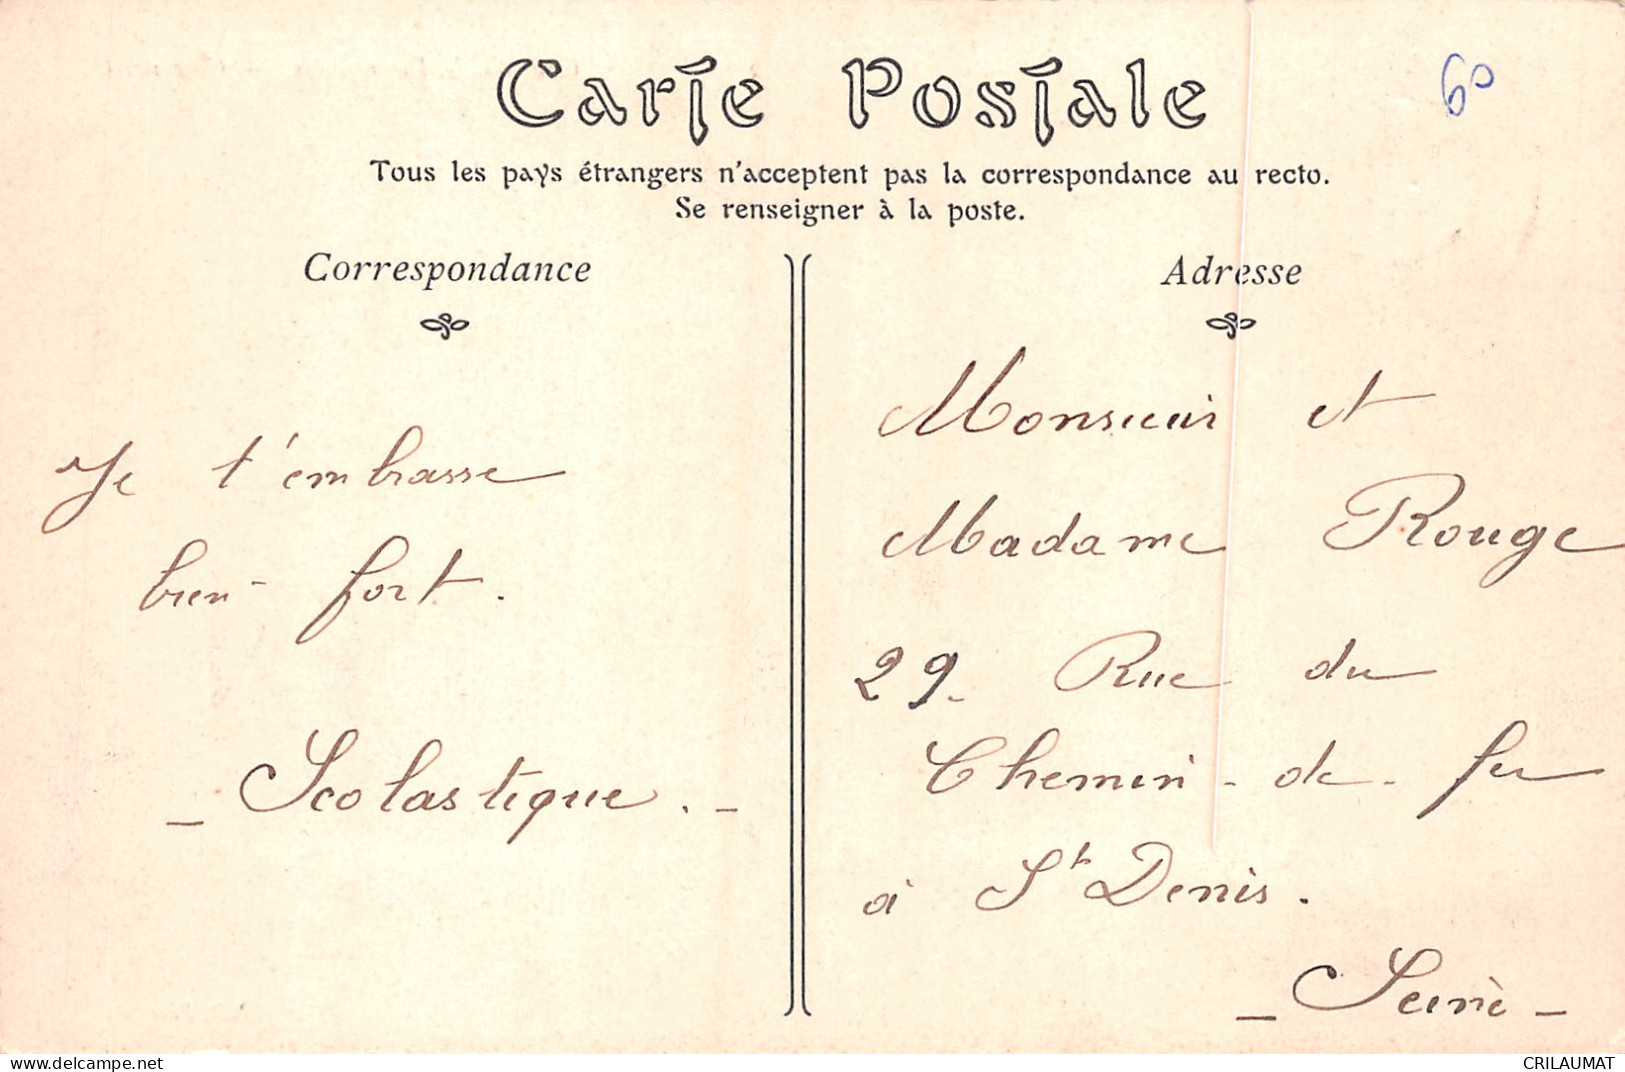 Carte Postale
60
Tous les pays étrangers n'acceptent pas la correspondance au recto.
Se renseigner à la poste.
Correspondance
Je t'embrasse
bien fort.
_ Scolastique. _
Adresse
Monsieur et
Madame Rouge
29. Rue du
Chemin-de-fer
à St Denis.
_ Seine _
www.delcampe.net
CRILAUMAT